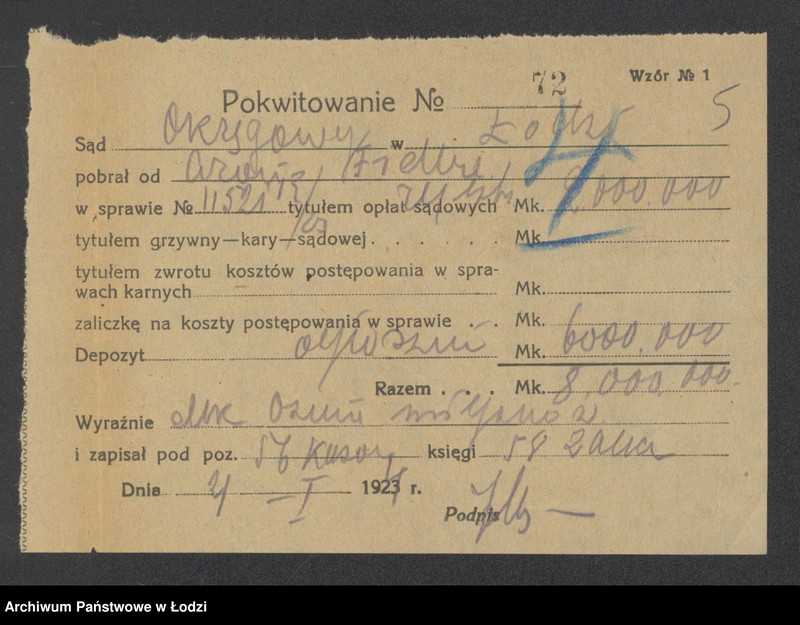 Wzór № 1
Pokwitowanie № 72
5
Sąd Okręgowy w Łodzi
pobrał od
w sprawie № 11521 tytułem opłat sądowych Mk. 2,000.000
tytułem grzywny—kary—sądowej . . . . . . Mk.
tytułem zwrotu kosztów postępowania w spra-
wach karnych Mk.
zaliczkę na koszty postępowania w sprawie . . Mk.
Depozyt ogłoszeń Mk. 6000.000
Razem . . . Mk. 8,000.000.
Wyraźnie Mk Osiem miljonów
i zapisał pod poz. 56 księgi 58
Dnia 4 – I 1924 r.
Podpis
Archiwum Państwowe w Łodzi